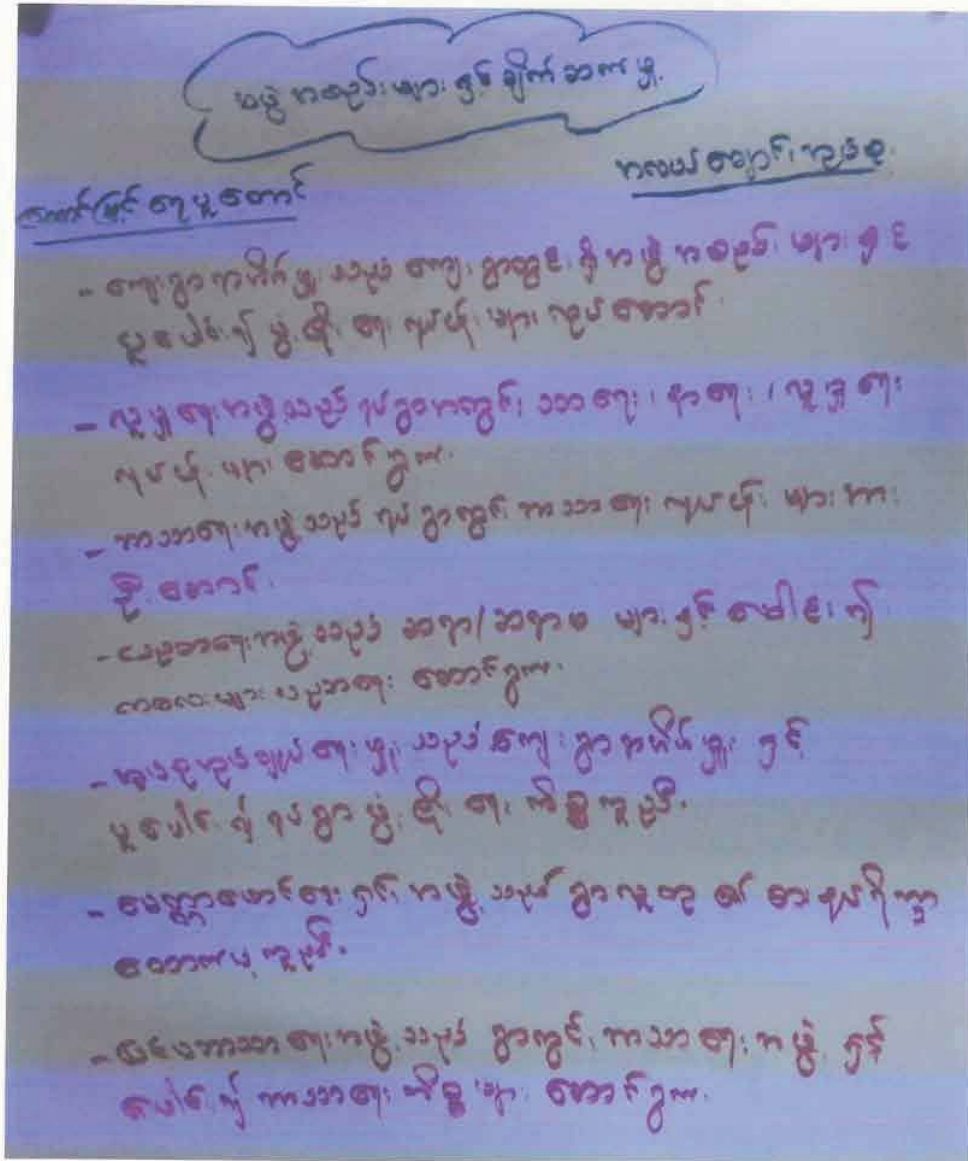 အဖွဲ့အစည်းများနှင့် ချိတ်ဆက်မှု
အလယ်ချောင်းအုပ်စု
အောင်မြင်ရေပူတောင်
- ကျေးရွာရာအိမ်မှူးသည် ကျေးရွာတွင်းရှိ အဖွဲ့အစည်းများနှင့်
ပူးပေါင်း၍ ဖွံ့ဖြိုးရေးလုပ်ငန်းများ လုပ်ဆောင်
- လူမှုရေးအဖွဲ့သည် ရပ်ရွာအတွင်း သာရေး၊ နာရေး၊ လူမှုရေး
လုပ်ငန်းများ ဆောင်ရွက်
- ဘာသာရေးအဖွဲ့သည် ရပ်ရွာတွင်း ဘာသာရေးလုပ်ငန်းများအား
ဦးဆောင်
- ပညာရေးအဖွဲ့သည် ဆရာ/ဆရာမများနှင့် ပေါင်း၍
ကလေးများပညာရေး ဆောင်ရွက်
- အုပ်ချုပ်ရေးမှူးသည် ကျေးရွာရာအိမ်မှူးနှင့်
ပူးပေါင်း၍ ရပ်ရွာဖွံ့ဖြိုးရေးကိစ္စ ကူညီ
- မေတ္တာဖောင်ဒေးရှင်းအဖွဲ့သည် ရွာလူထု၏ စားနပ်ရိက္ခာ
ထောက်ပံ့ကူညီ
- ပြင်ပဘာသာရေးအဖွဲ့သည် ရွာတွင်းဘာသာရေးအဖွဲ့နှင့်
ပေါင်း၍ ဘာသာရေးကိစ္စများ ဆောင်ရွက်